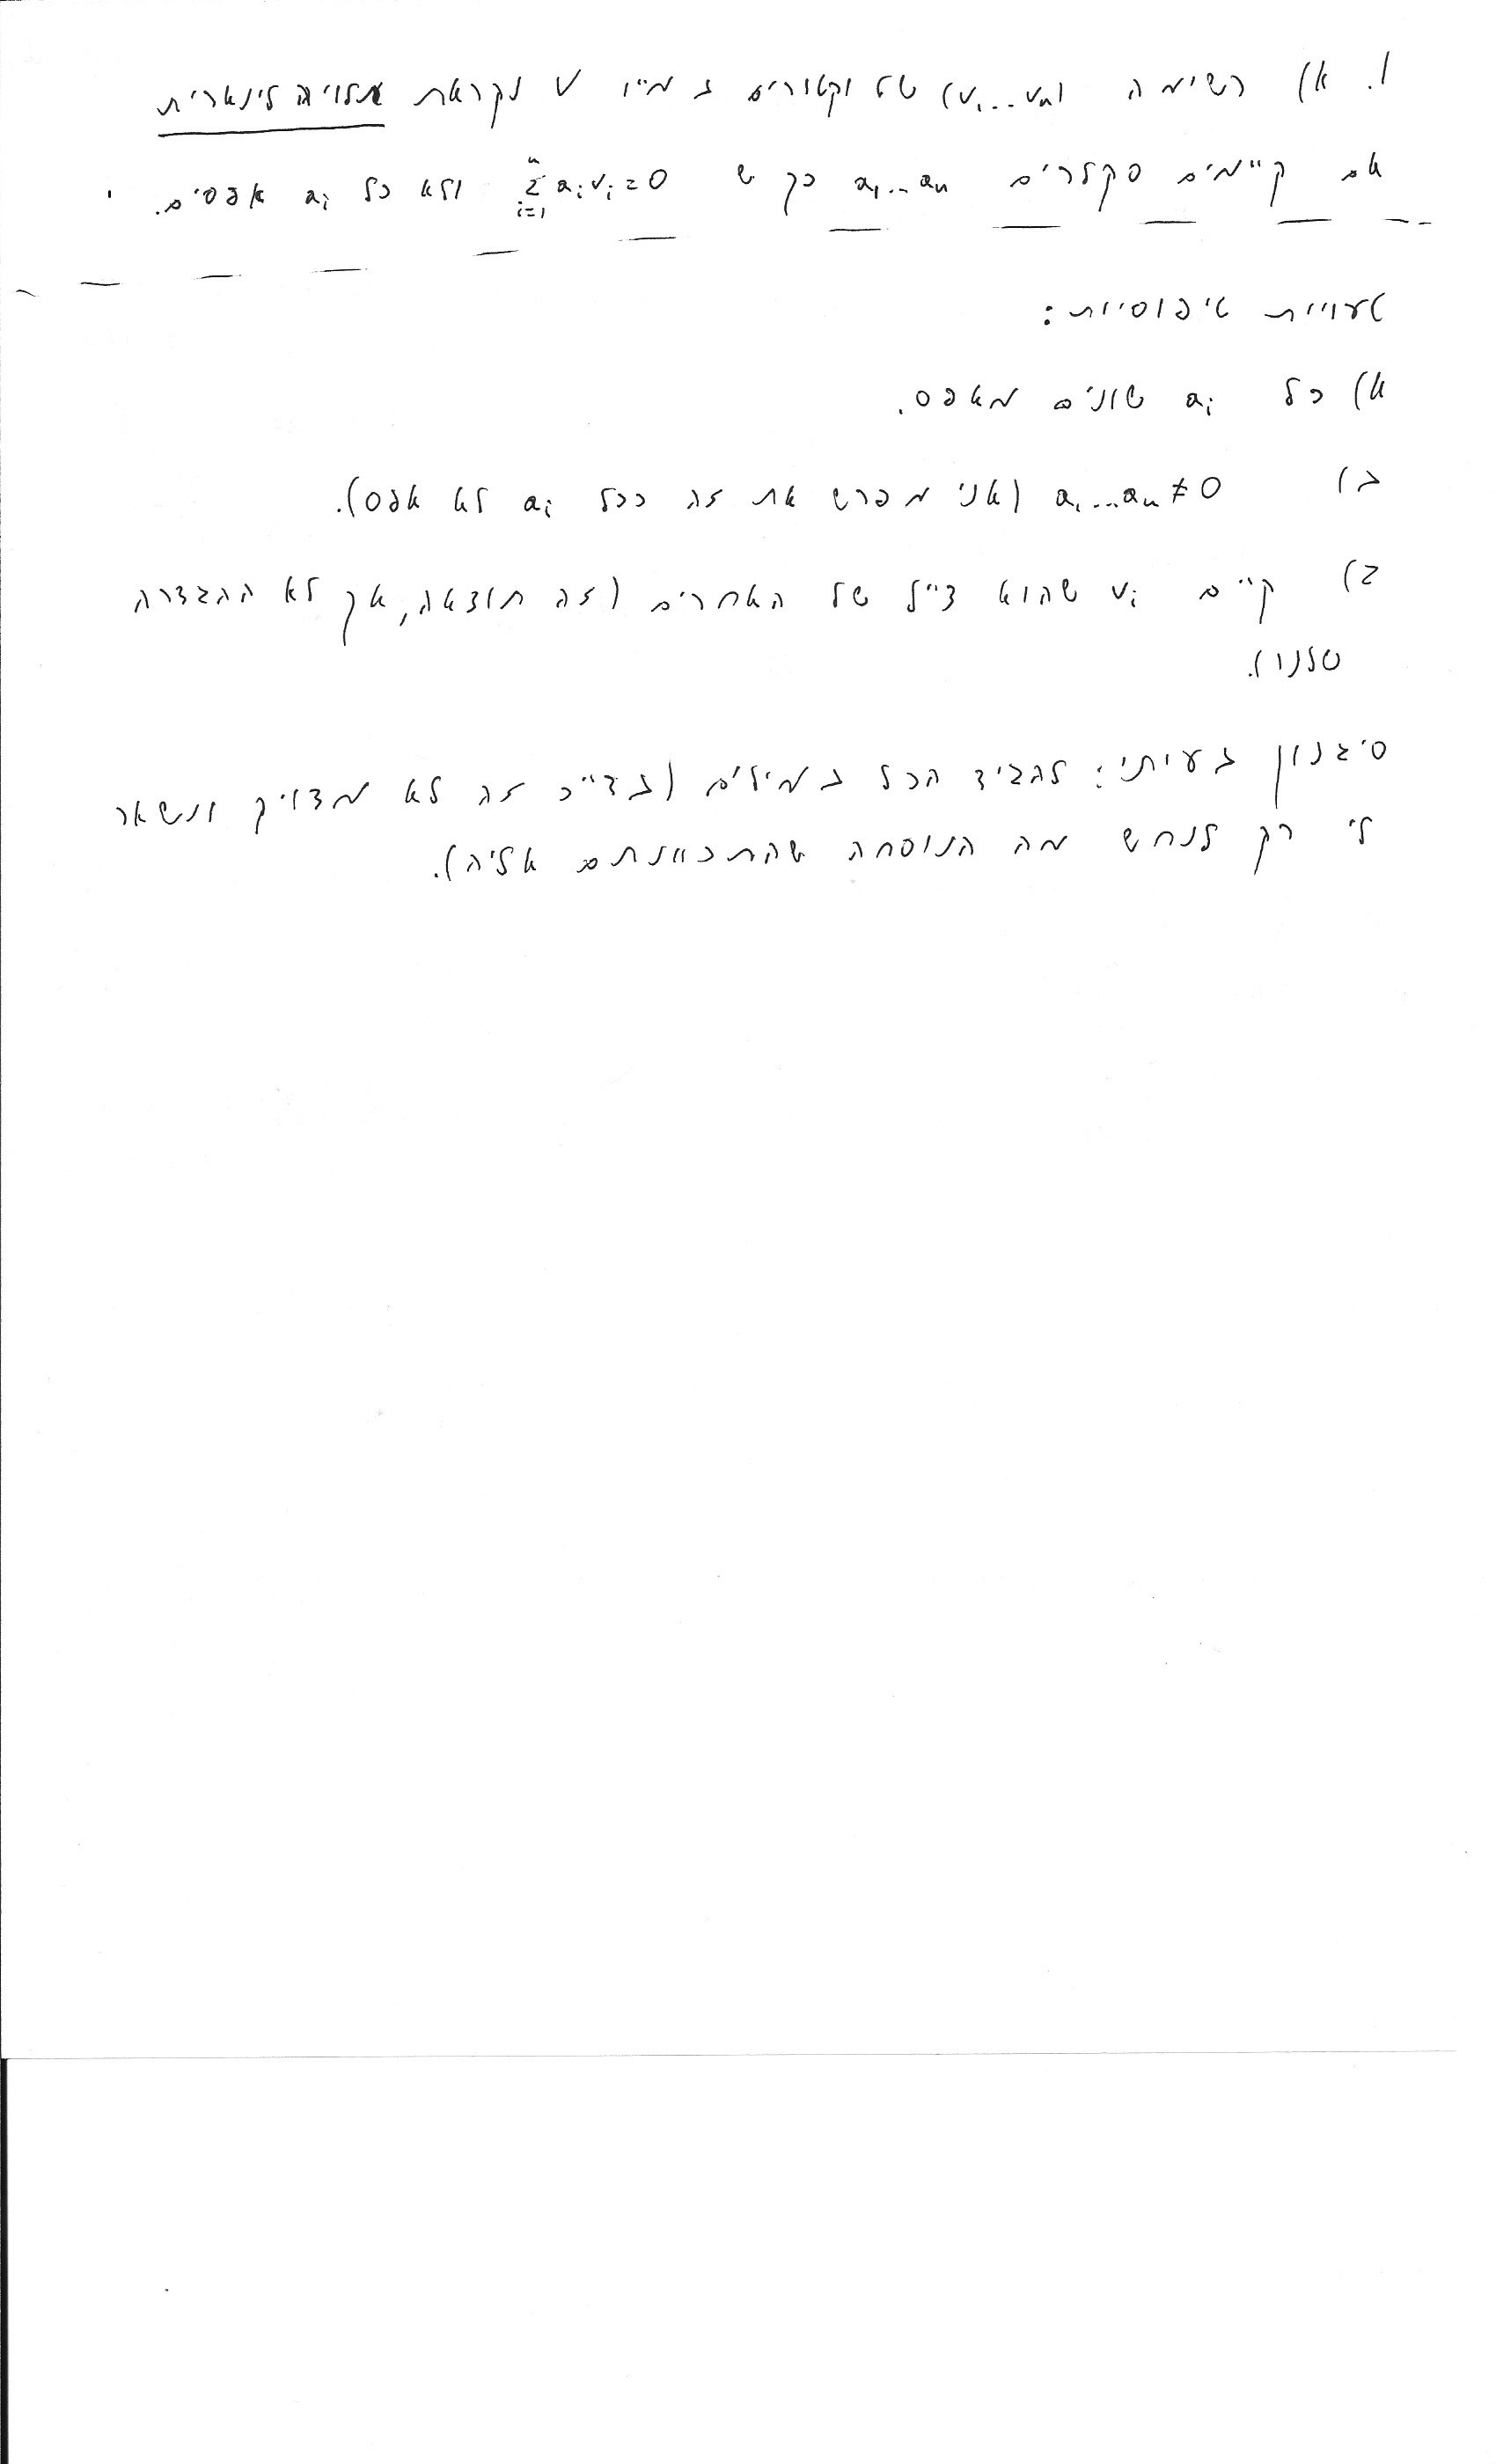 1. א) רשימה (v₁...vₙ) של וקטורים במ״ו V נקראת תלויה לינארית
אם קיימים סקלרים a₁...aₙ כך ש Σⁿᵢ₌₁ aᵢvᵢ=0 ולא כל aᵢ אפסים.
טעויות טיפוסיות:
א) כל aᵢ שונים מאפס.
ב) a₁...aₙ≠0 (אני מפרש את זה ככל aᵢ לא אפס).
ג) קיים vᵢ שהוא צ״ל של האחרים (זה תוצאה, אך לא ההגדרה
שלנו).
סיגנון בעייתי: להגיד הכל במילים (בד״כ זה לא מדויק ונשאר
לי רק לנחש מה הנוסחה שהתכוונתם אליה).